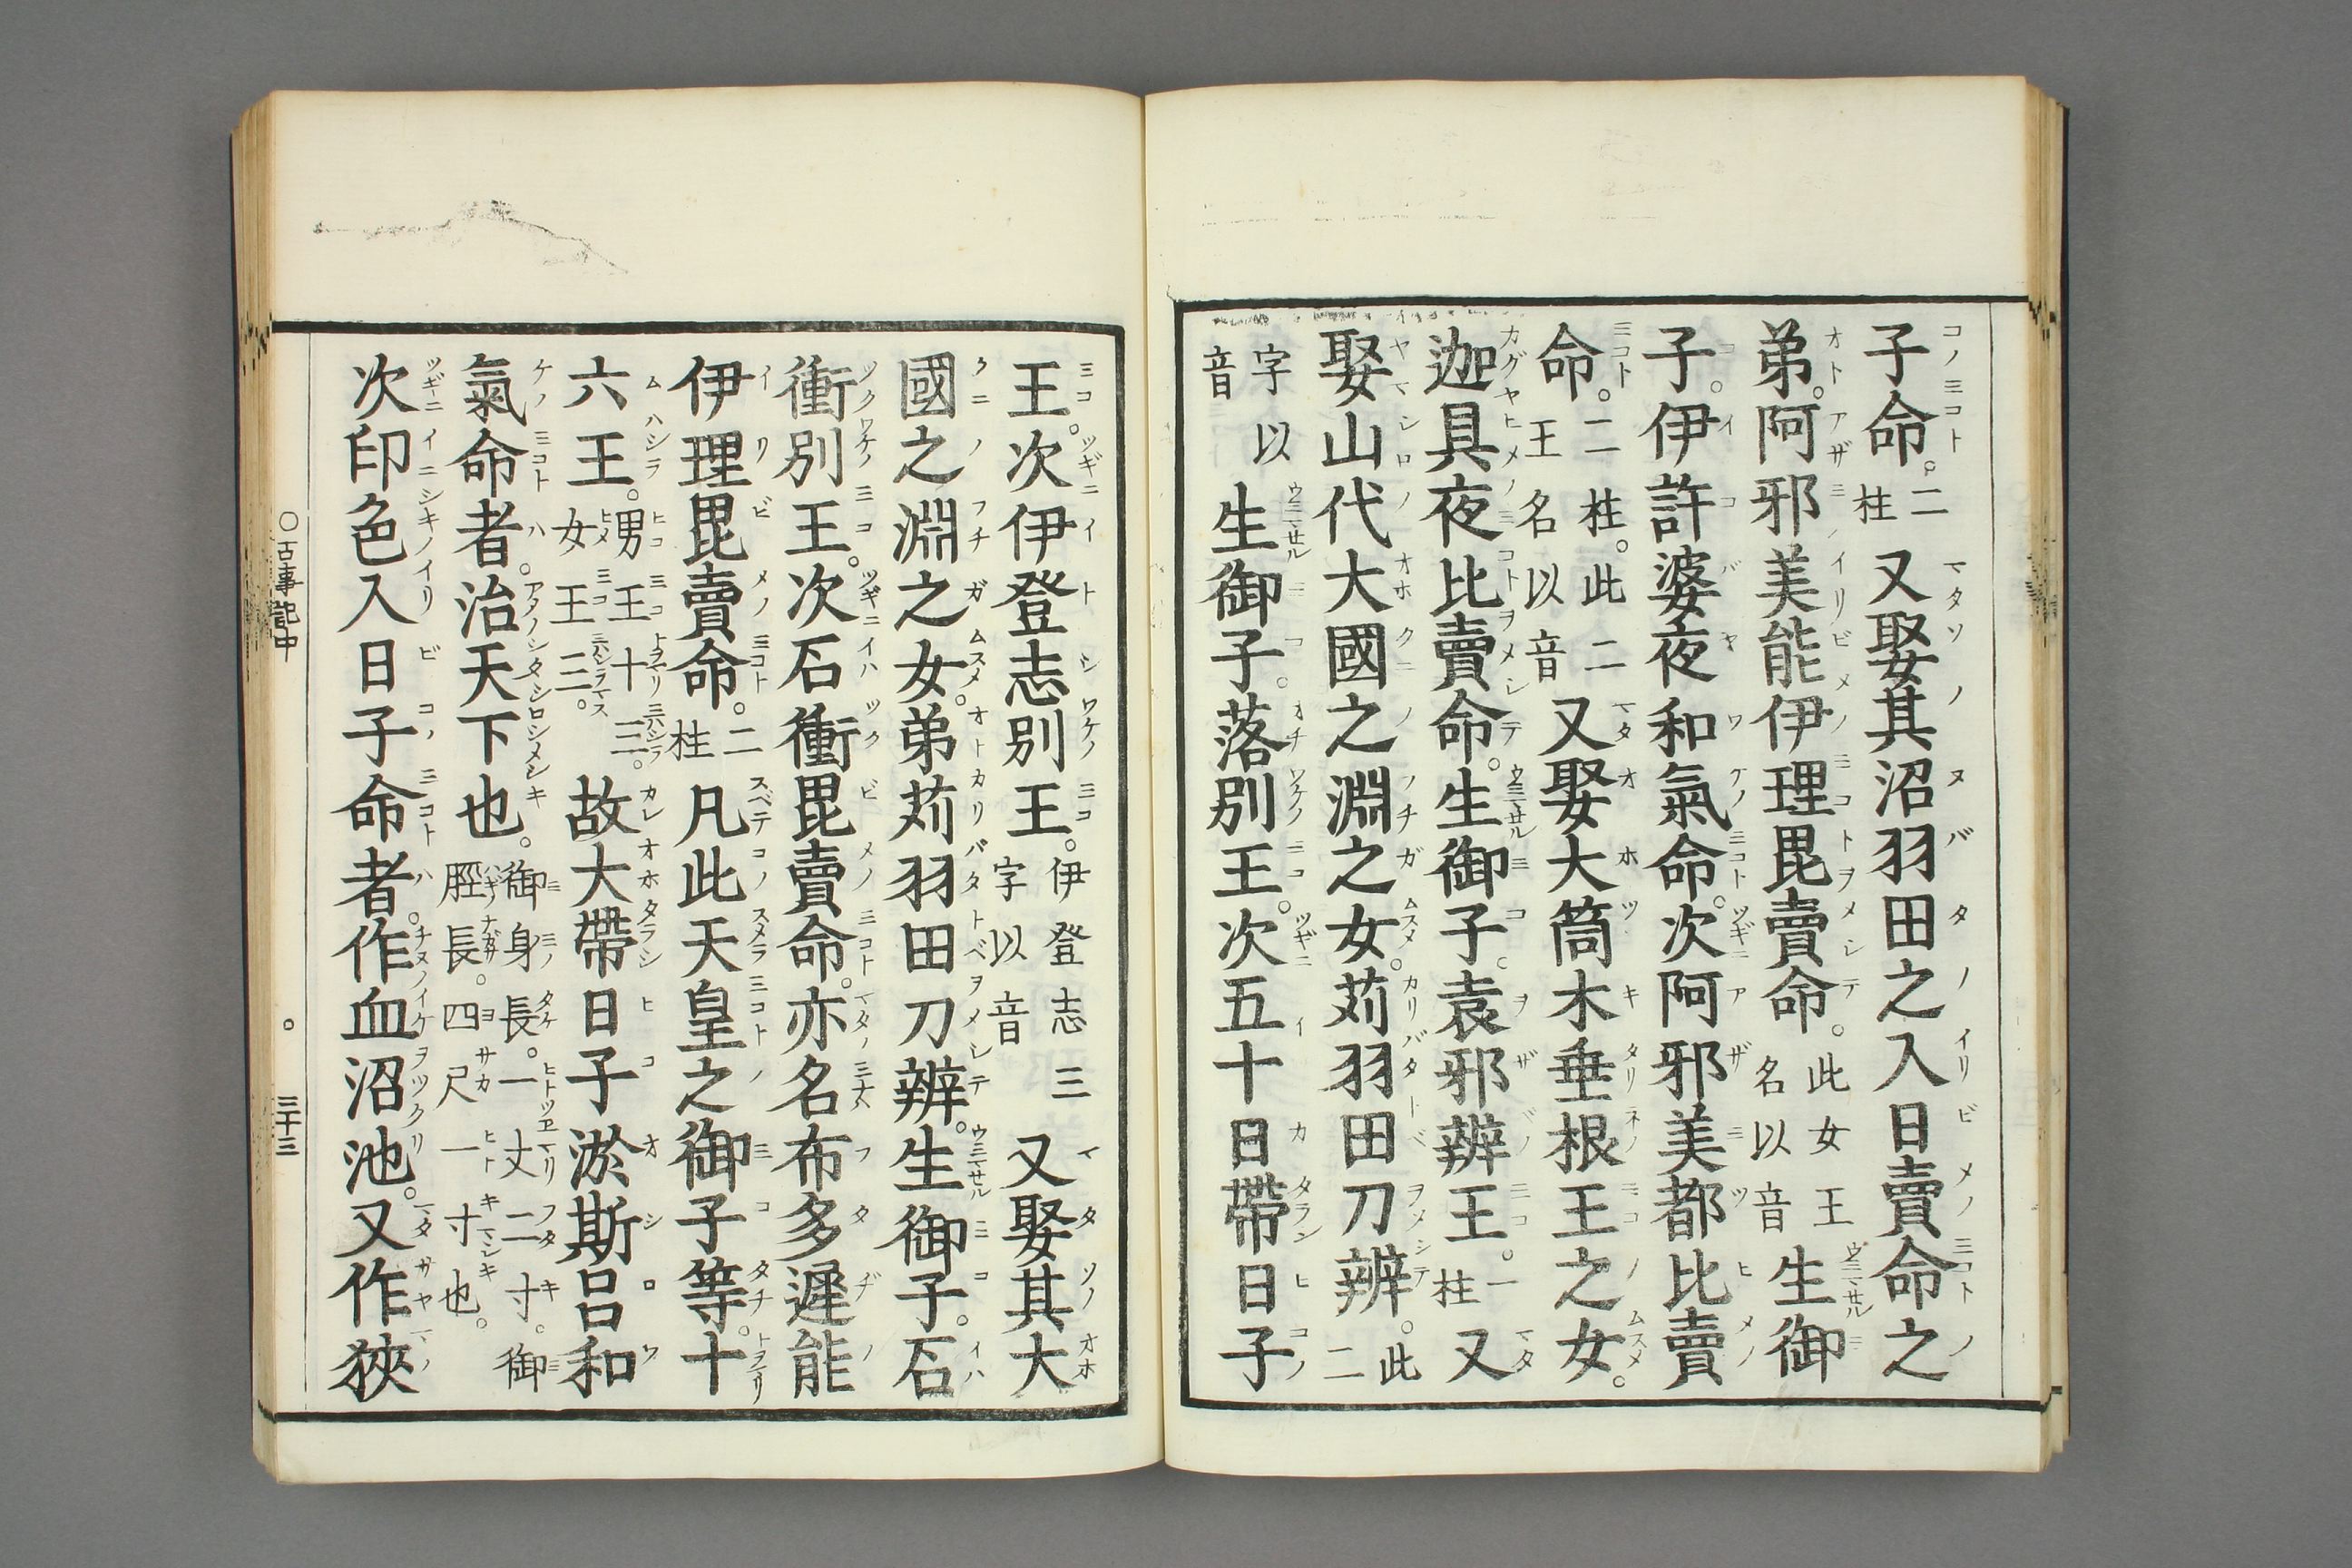 子命。二柱又娶其沼羽田之入日賣命之
弟。阿邪美能伊理毘賣命。此女王名以音生御
子。伊許婆夜和氣命。次阿邪美都比賣
命。二柱。此二王名以音又娶大筒木垂根王之女。
迦具夜比賣命。生御子。袁邪辨王。一柱又
娶山代大國之淵之女。苅羽田刀辨。此二
字以音生御子。落別王。次五十日帶日子
王。次伊登志別王。伊登志三字以音又娶其大
國之淵之女。弟苅羽田刀辨。生御子。石
衝別王。次石衝毘賣命。亦名布多遲能
伊理毘賣命。二柱凡此天皇之御子等。十
六王。男王十三。女王三。故大帶日子淤斯呂和
氣命者。治天下也。御身長。一丈二寸。御脛長。四尺一寸也。
次印色入日子命者。作血沼池。又作狹
○古事記中 ○ 三十三